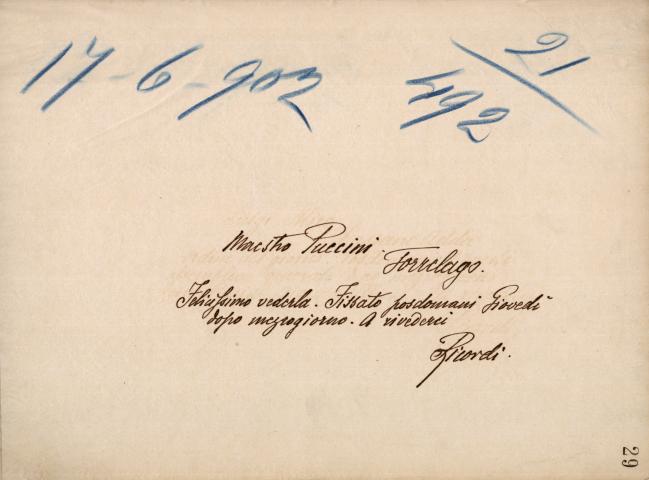 17-6-902
21/492
Maestro Puccini.
Torrelago.
Felicissimo vederla. Fissato posdomani Giovedì
dopo mezzogiorno. A rivederci
Ricordi.
29